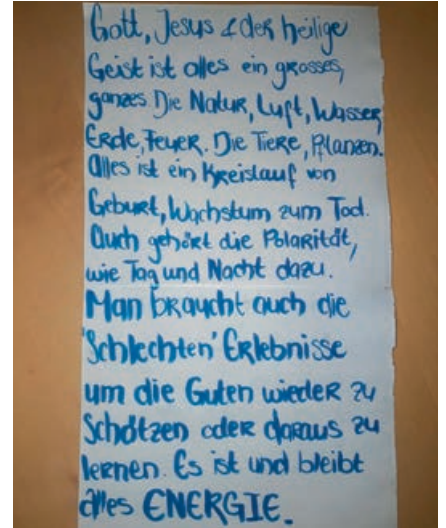 Gott, Jesus & der heilige
Geist ist alles ein grosses,
ganzes. Die Natur, Luft, Wasser,
Erde, Feuer. Die Tiere, Pflanzen.
Alles ist ein Kreislauf von
Geburt, Wachstum zum Tod.
Auch gehört die Polarität,
wie Tag und Nacht dazu.
Man braucht auch die
'Schlechten' Erlebnisse
um die Guten wieder zu
Schätzen oder daraus zu
lernen. Es ist und bleibt
alles ENERGIE.